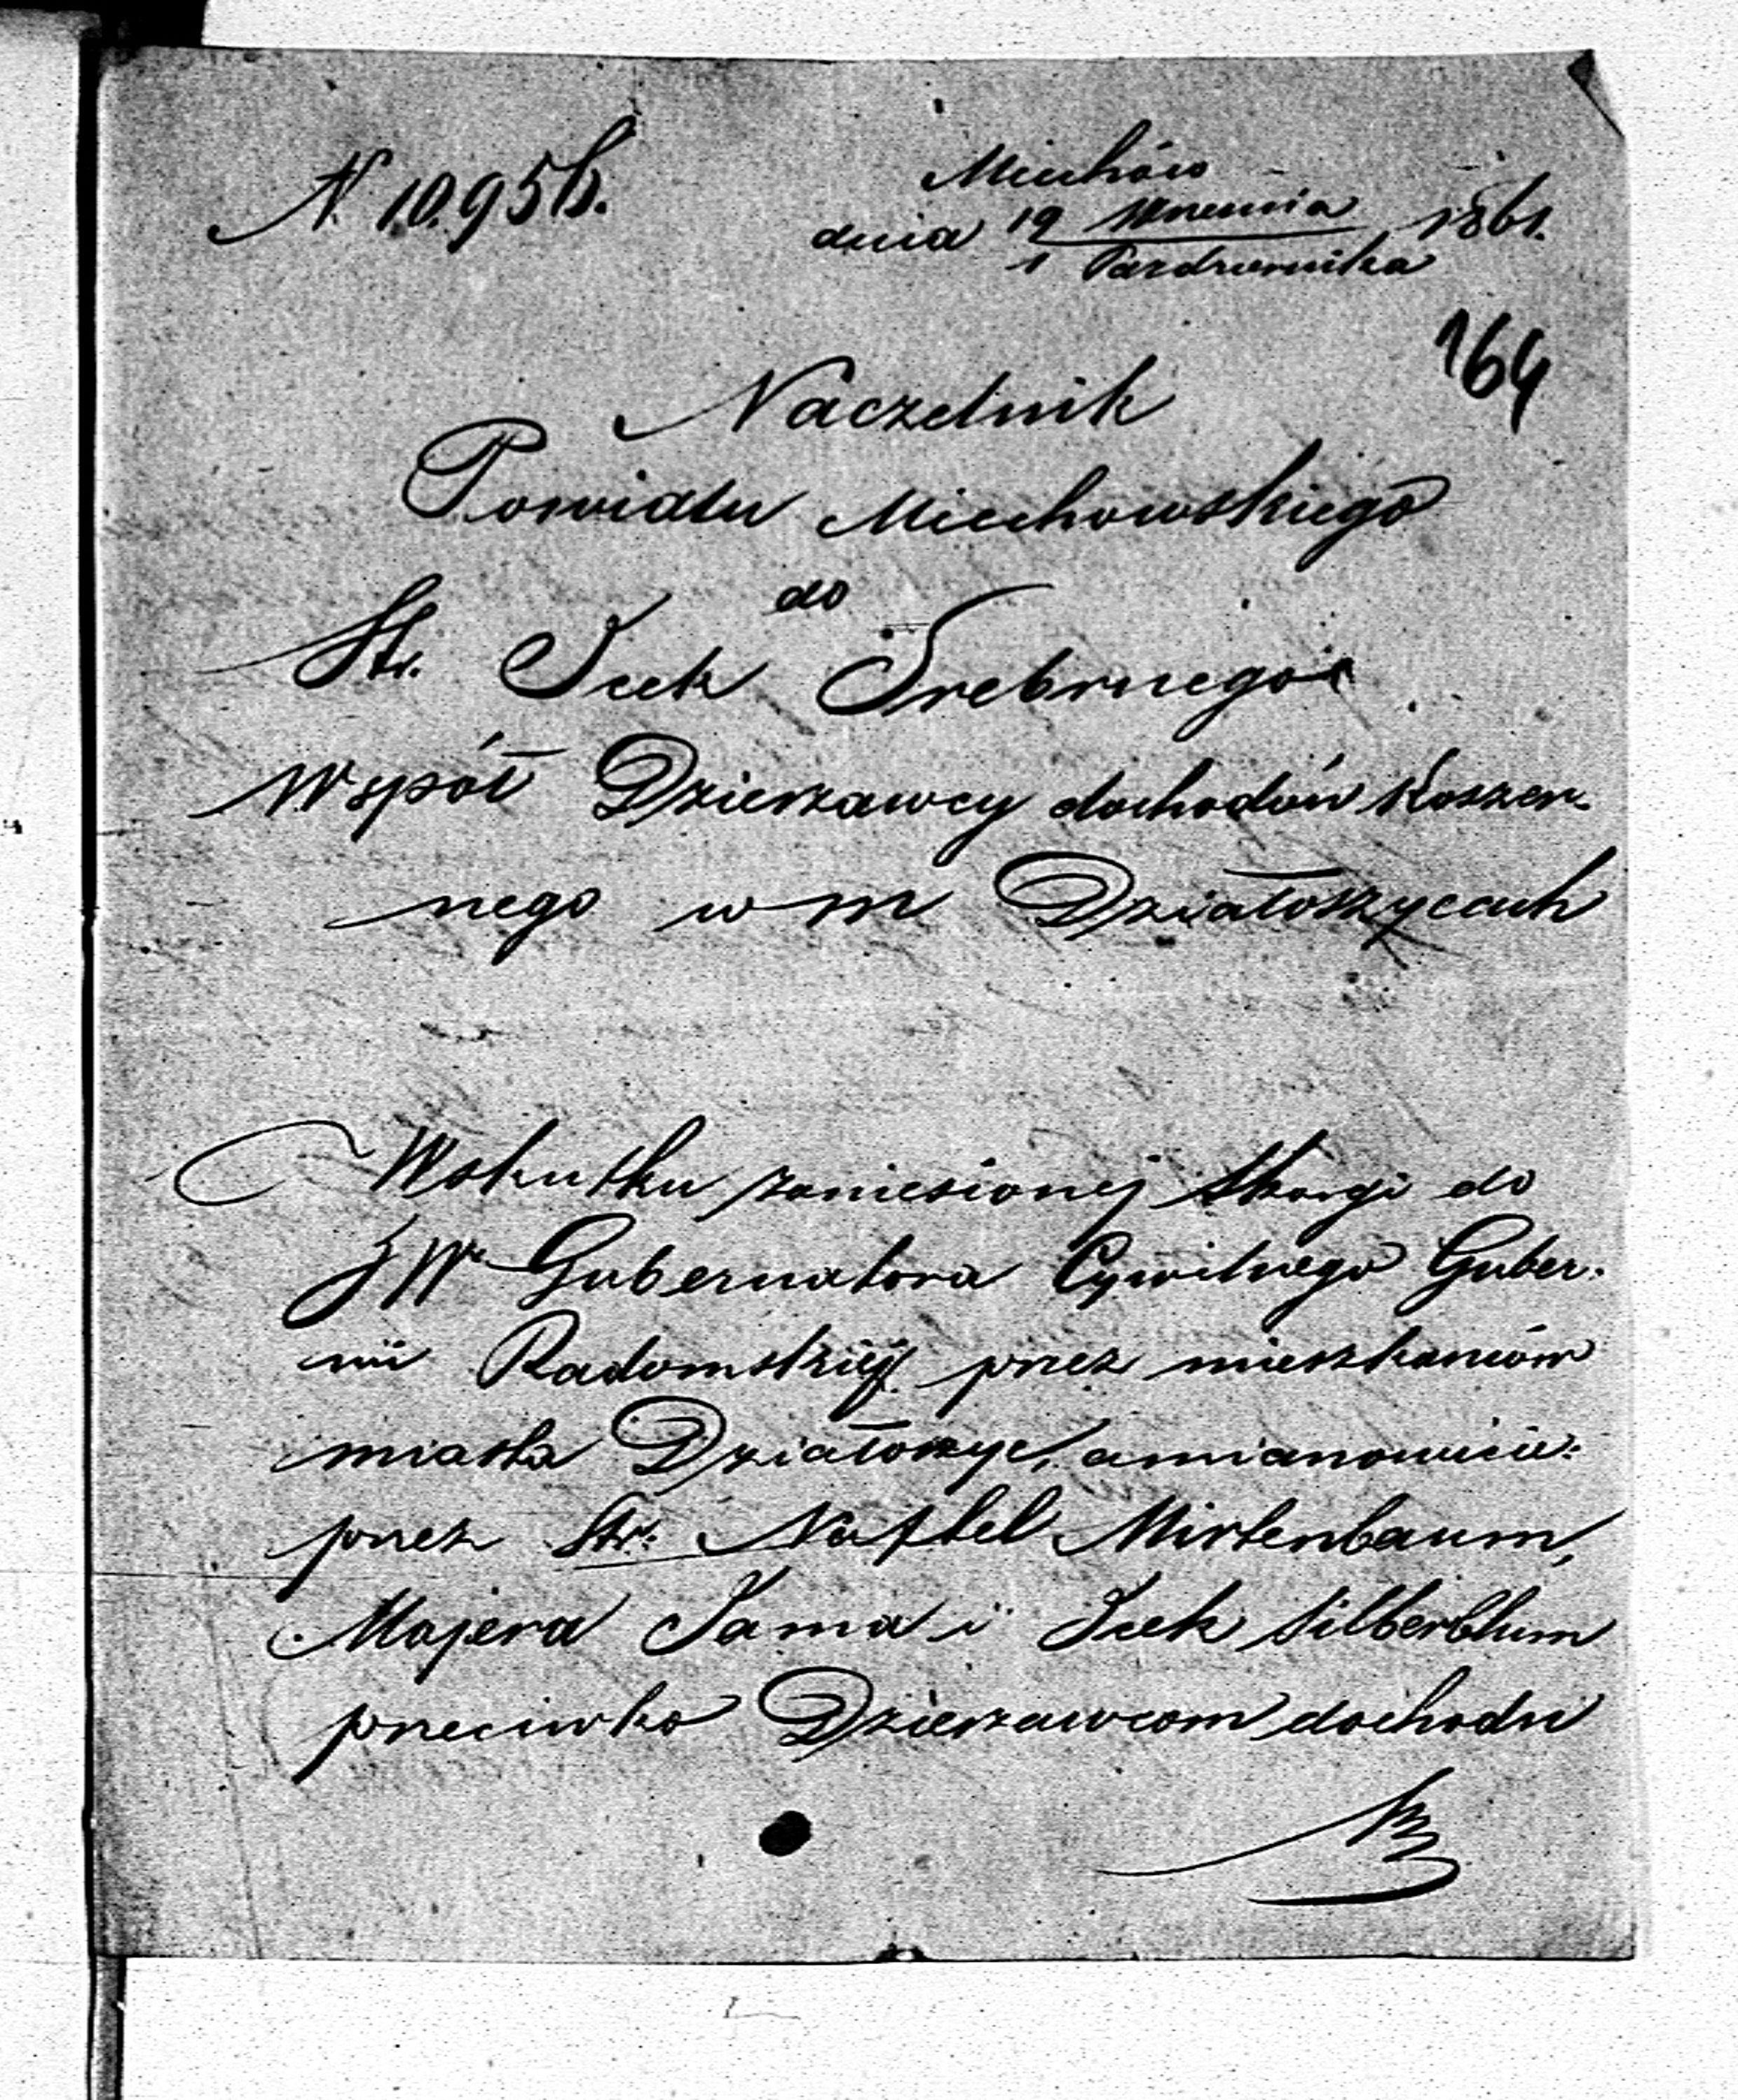 N 10.956.
Miechów
dnia 19 Września 1861.
1 Pazdziernika
164
Naczelnik
Powiatu Miechowskiego
do
St. Icek Srebrnego
Wspoł Dzierzawcy dochodów Koszer-
nego w m Działoszycach
Wskutku zaniesionej skargi do
JW Gubernatora Cywilnego Guber-
nii Radomskiej przez mieszkańców
miasta Działoszyc, amianowicie:
przez St: Naftel Mirtenbaum,
Majera Jama i Icek Silberblum
przeciwko Dzierzawcom dochodu